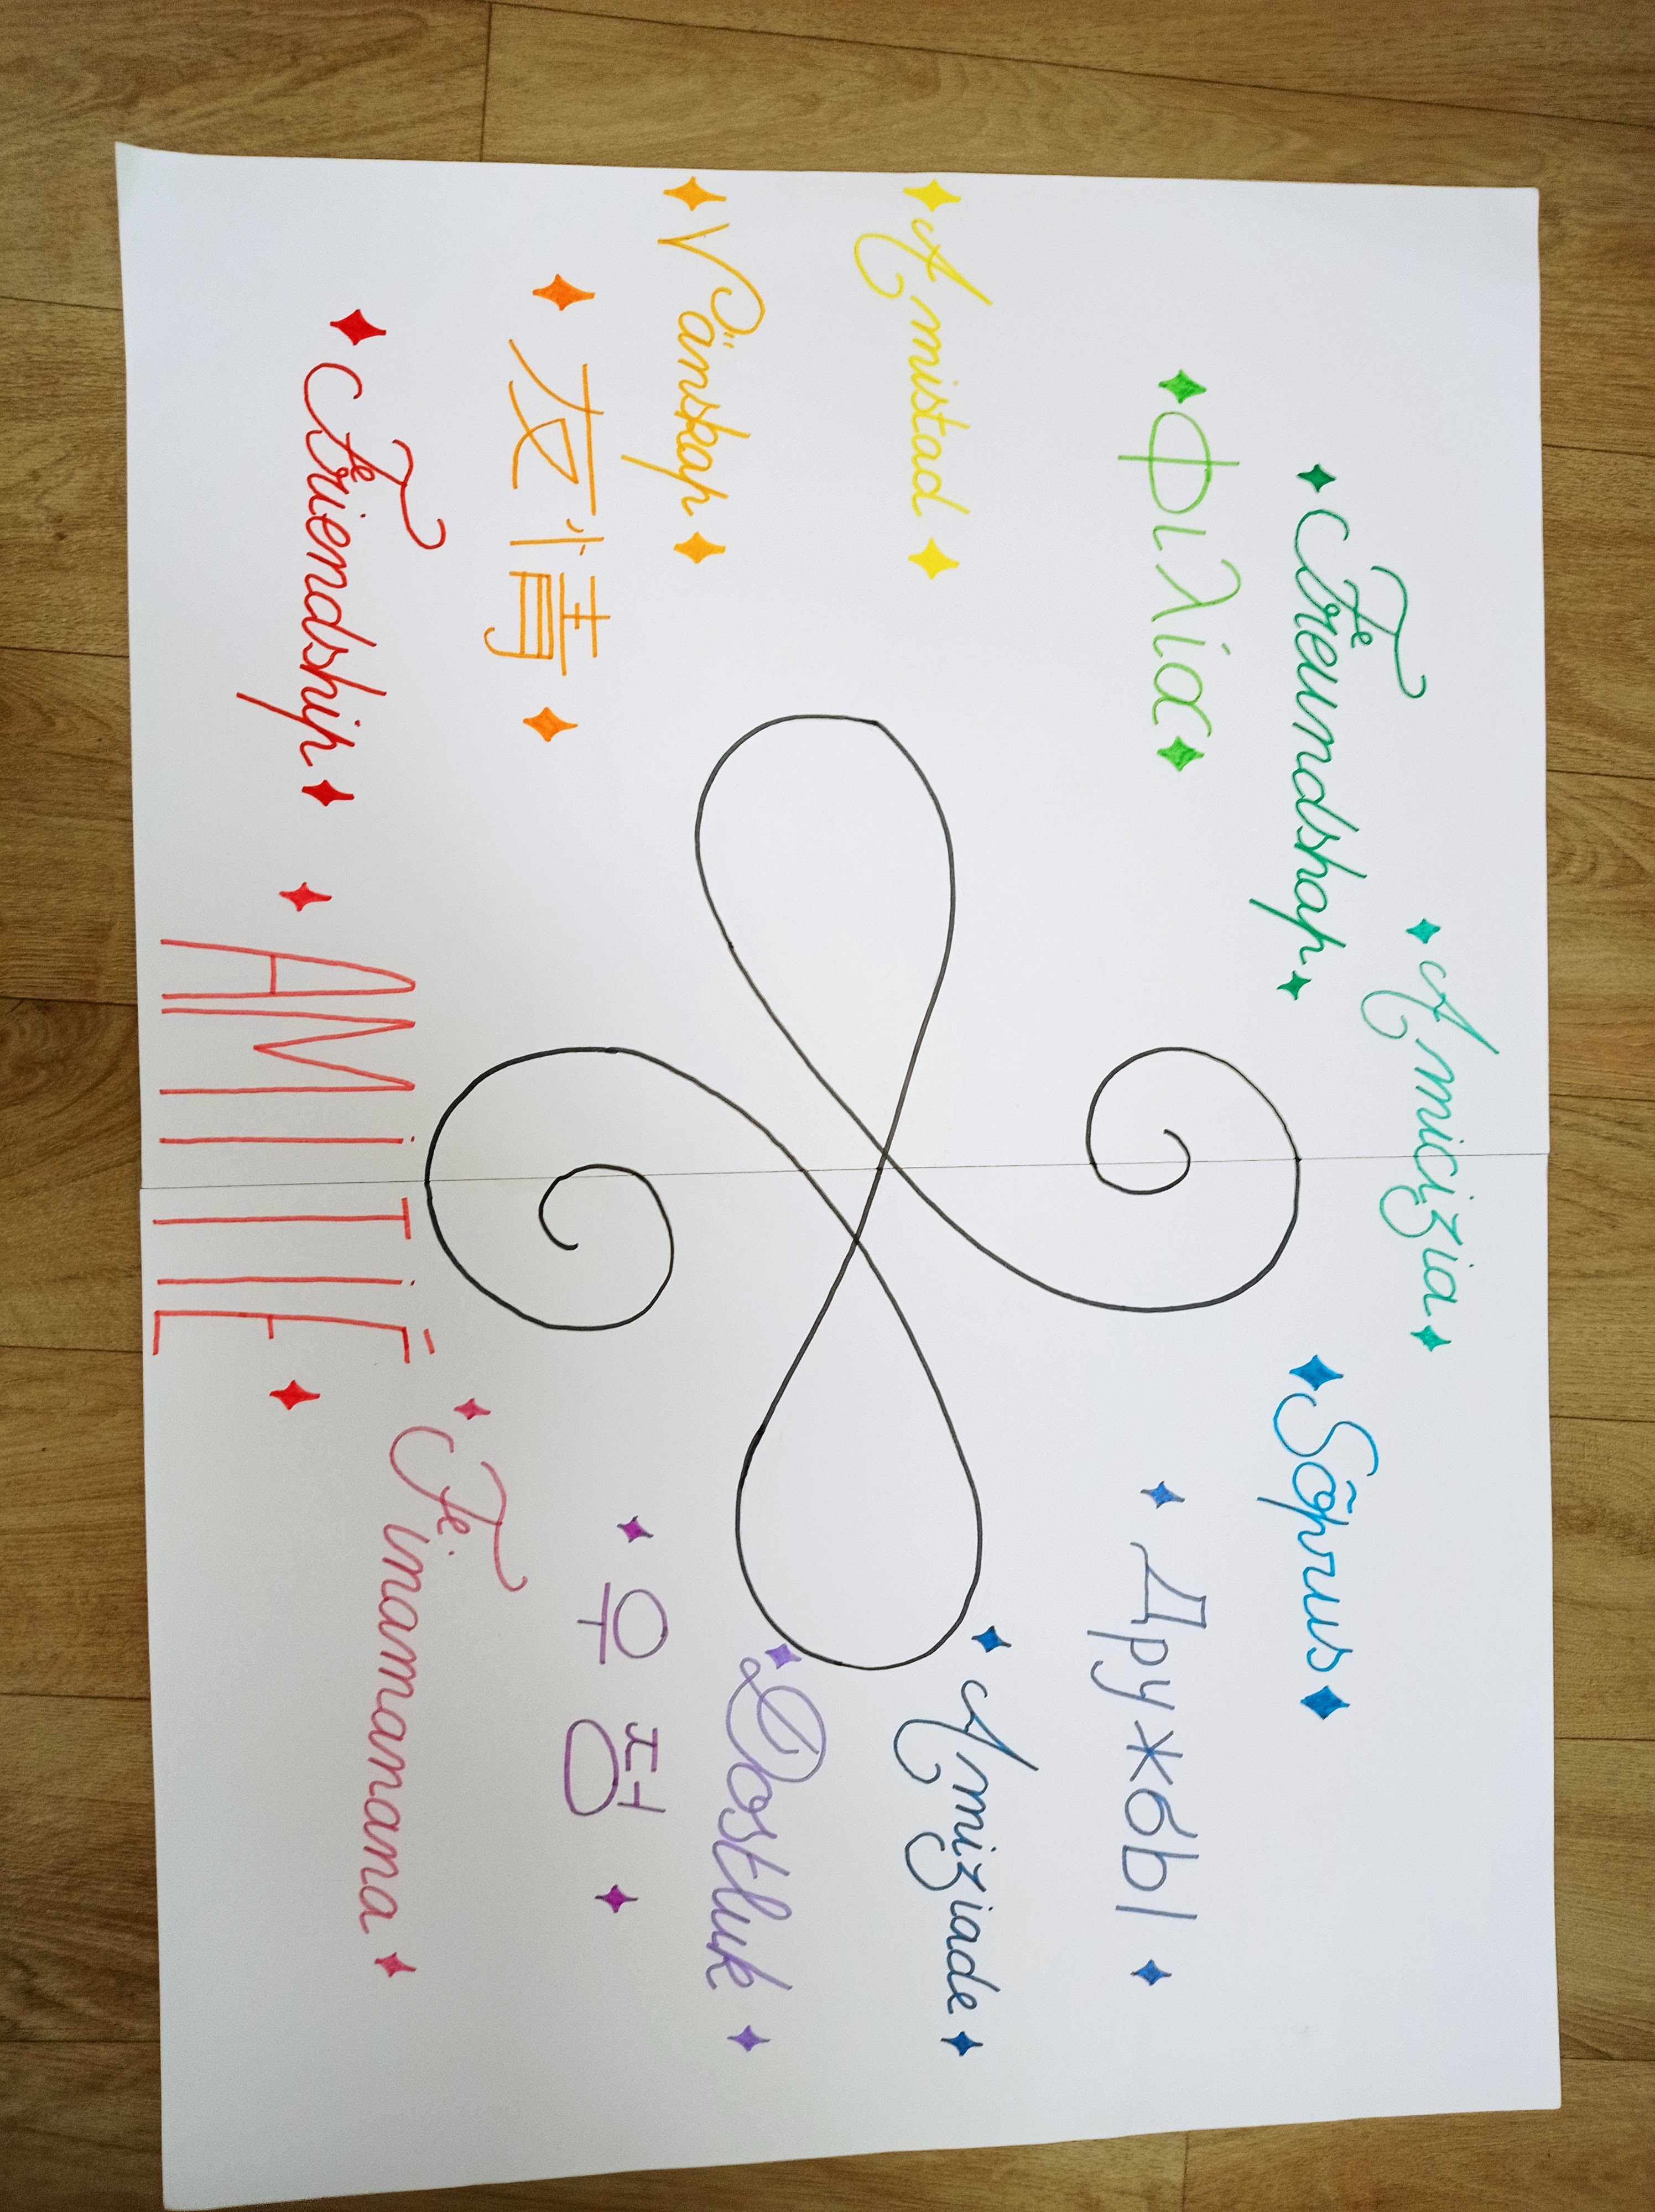 Amicizia
Freundshap
Sõprus
Φιλία
Дружбы
Amistad
Amiziade
Vänskap
Dostluk
友情
우정
Friendship
Finamanana
AMITIÉ